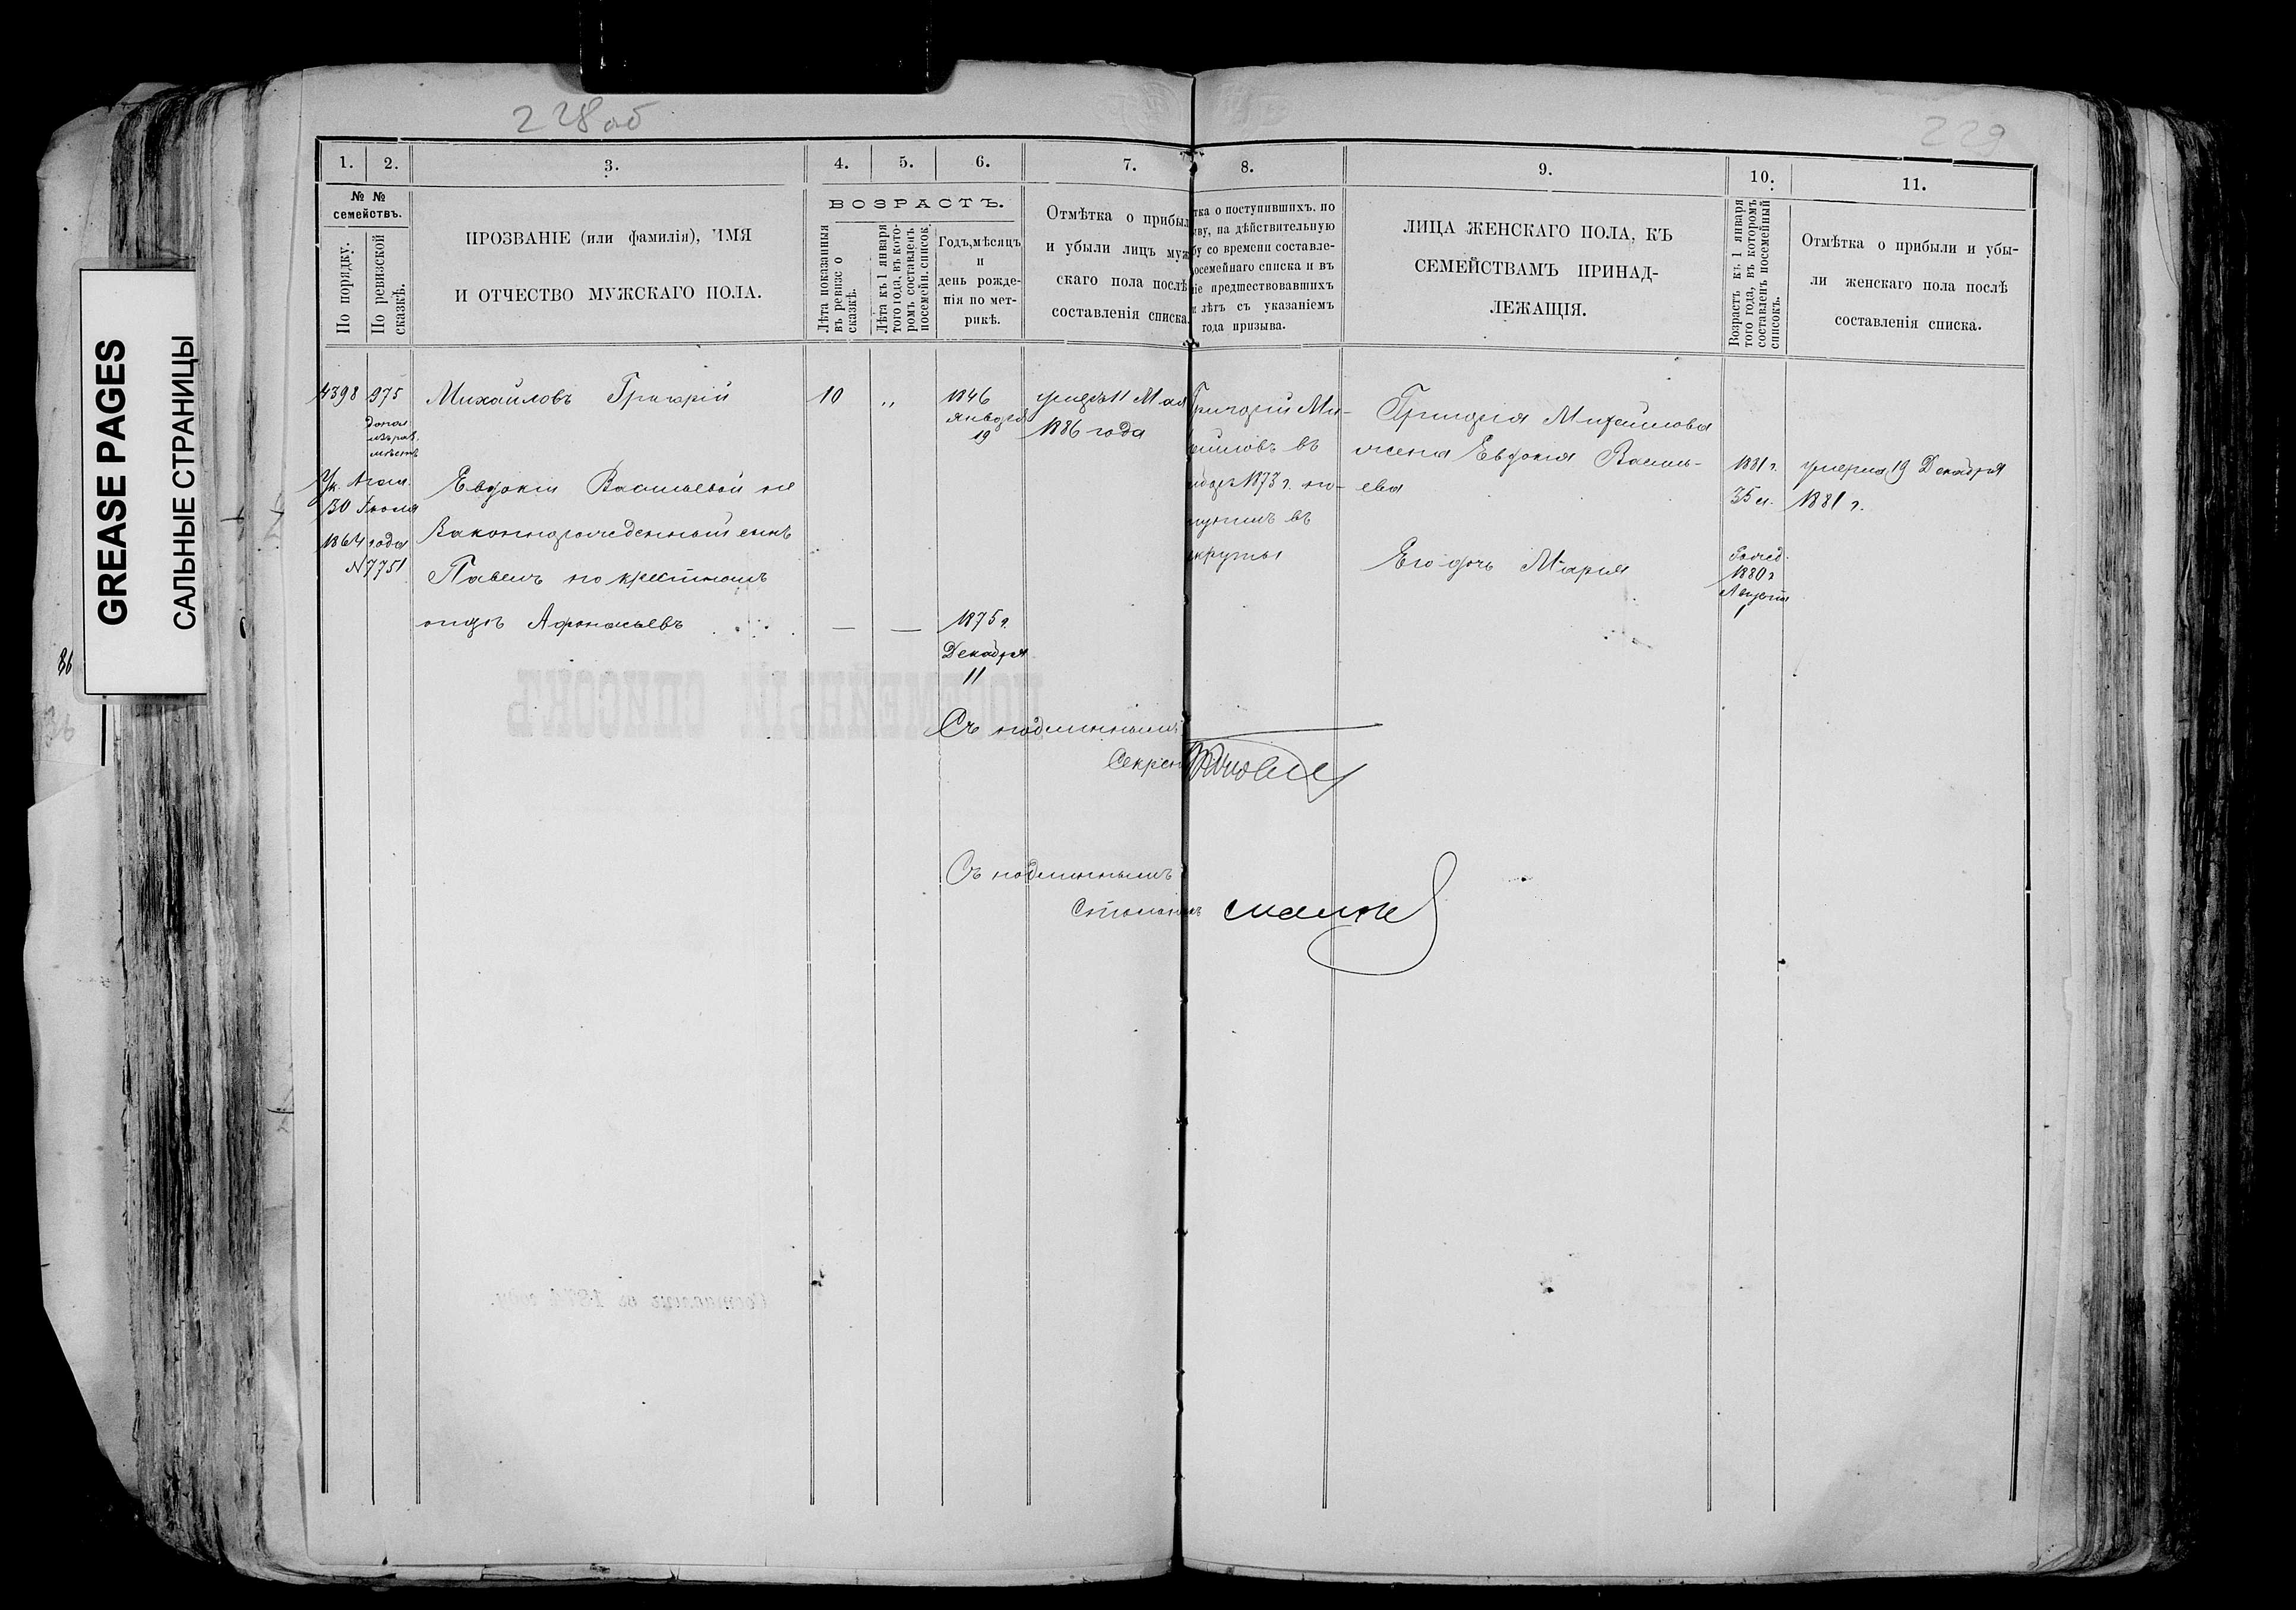 228 об
229
GREASE PAGES
САЛЬНЫЕ СТРАНИЦЫ
86
1.
2.
3.
4.
5.
6.
7.
8.
9.
10.
11.
№ №
семействъ.
По порядку.
По ревизской
сказкѣ.
ПРОЗВАНІЕ (или фамилія), ИМЯ
И ОТЧЕСТВО МУЖСКАГО ПОЛА.
ВОЗРАСТЪ.
Лѣта показанныя
въ ревизс о
сказкѣ.
Лѣта къ 1 января
того года, въ кото-
ромъ составленъ
посемейн. списокъ.
Годъ, мѣсяцъ
и
день рожде-
нія по мет-
рикѣ.
Отмѣтка о прибыл
и убыли лицъ муж
скаго пола послѣ
составленія списка.
тка о поступившихъ, по
ыву, на дѣйствительную
бу со времени составле-
осемейнаго списка и въ
ніе предшествовавшихъ
и лѣтъ съ указаніемъ
года призыва.
ЛИЦА ЖЕНСКАГО ПОЛА, КЪ
СЕМЕЙСТВАМЪ ПРИНАД-
ЛЕЖАЩІЯ.
Возрастъ къ 1 января
того года, въ которомъ
составленъ посемейный
списокъ.
Отмѣтка о прибыли и убы-
ли женскаго пола послѣ
составленія списка.
4398
975
Михайловъ Григорій
10
„
1846
января
19
умеръ 11 Мая
1886 года
Григорій Ми-
хайловъ въ
1873 г. по-
ступилъ въ
рекруты
Григорія Михайлова
жена Евдокія Василь-
ева
1881 г.
35 л.
умерла 19 Декабря
1881 г.
Ук.
30 Іюля
1864 года
№ 7751
Евдокіи Васильевой не
законнорожденный сынъ
Павелъ по крестному
отцу Афонасьевъ
—
—
1875 г.
Декабря
11
Его дочь Марія
Рожд.
1880 г
Августа
1
Съ подлиннымъ
Секрет
Съ подлиннымъ